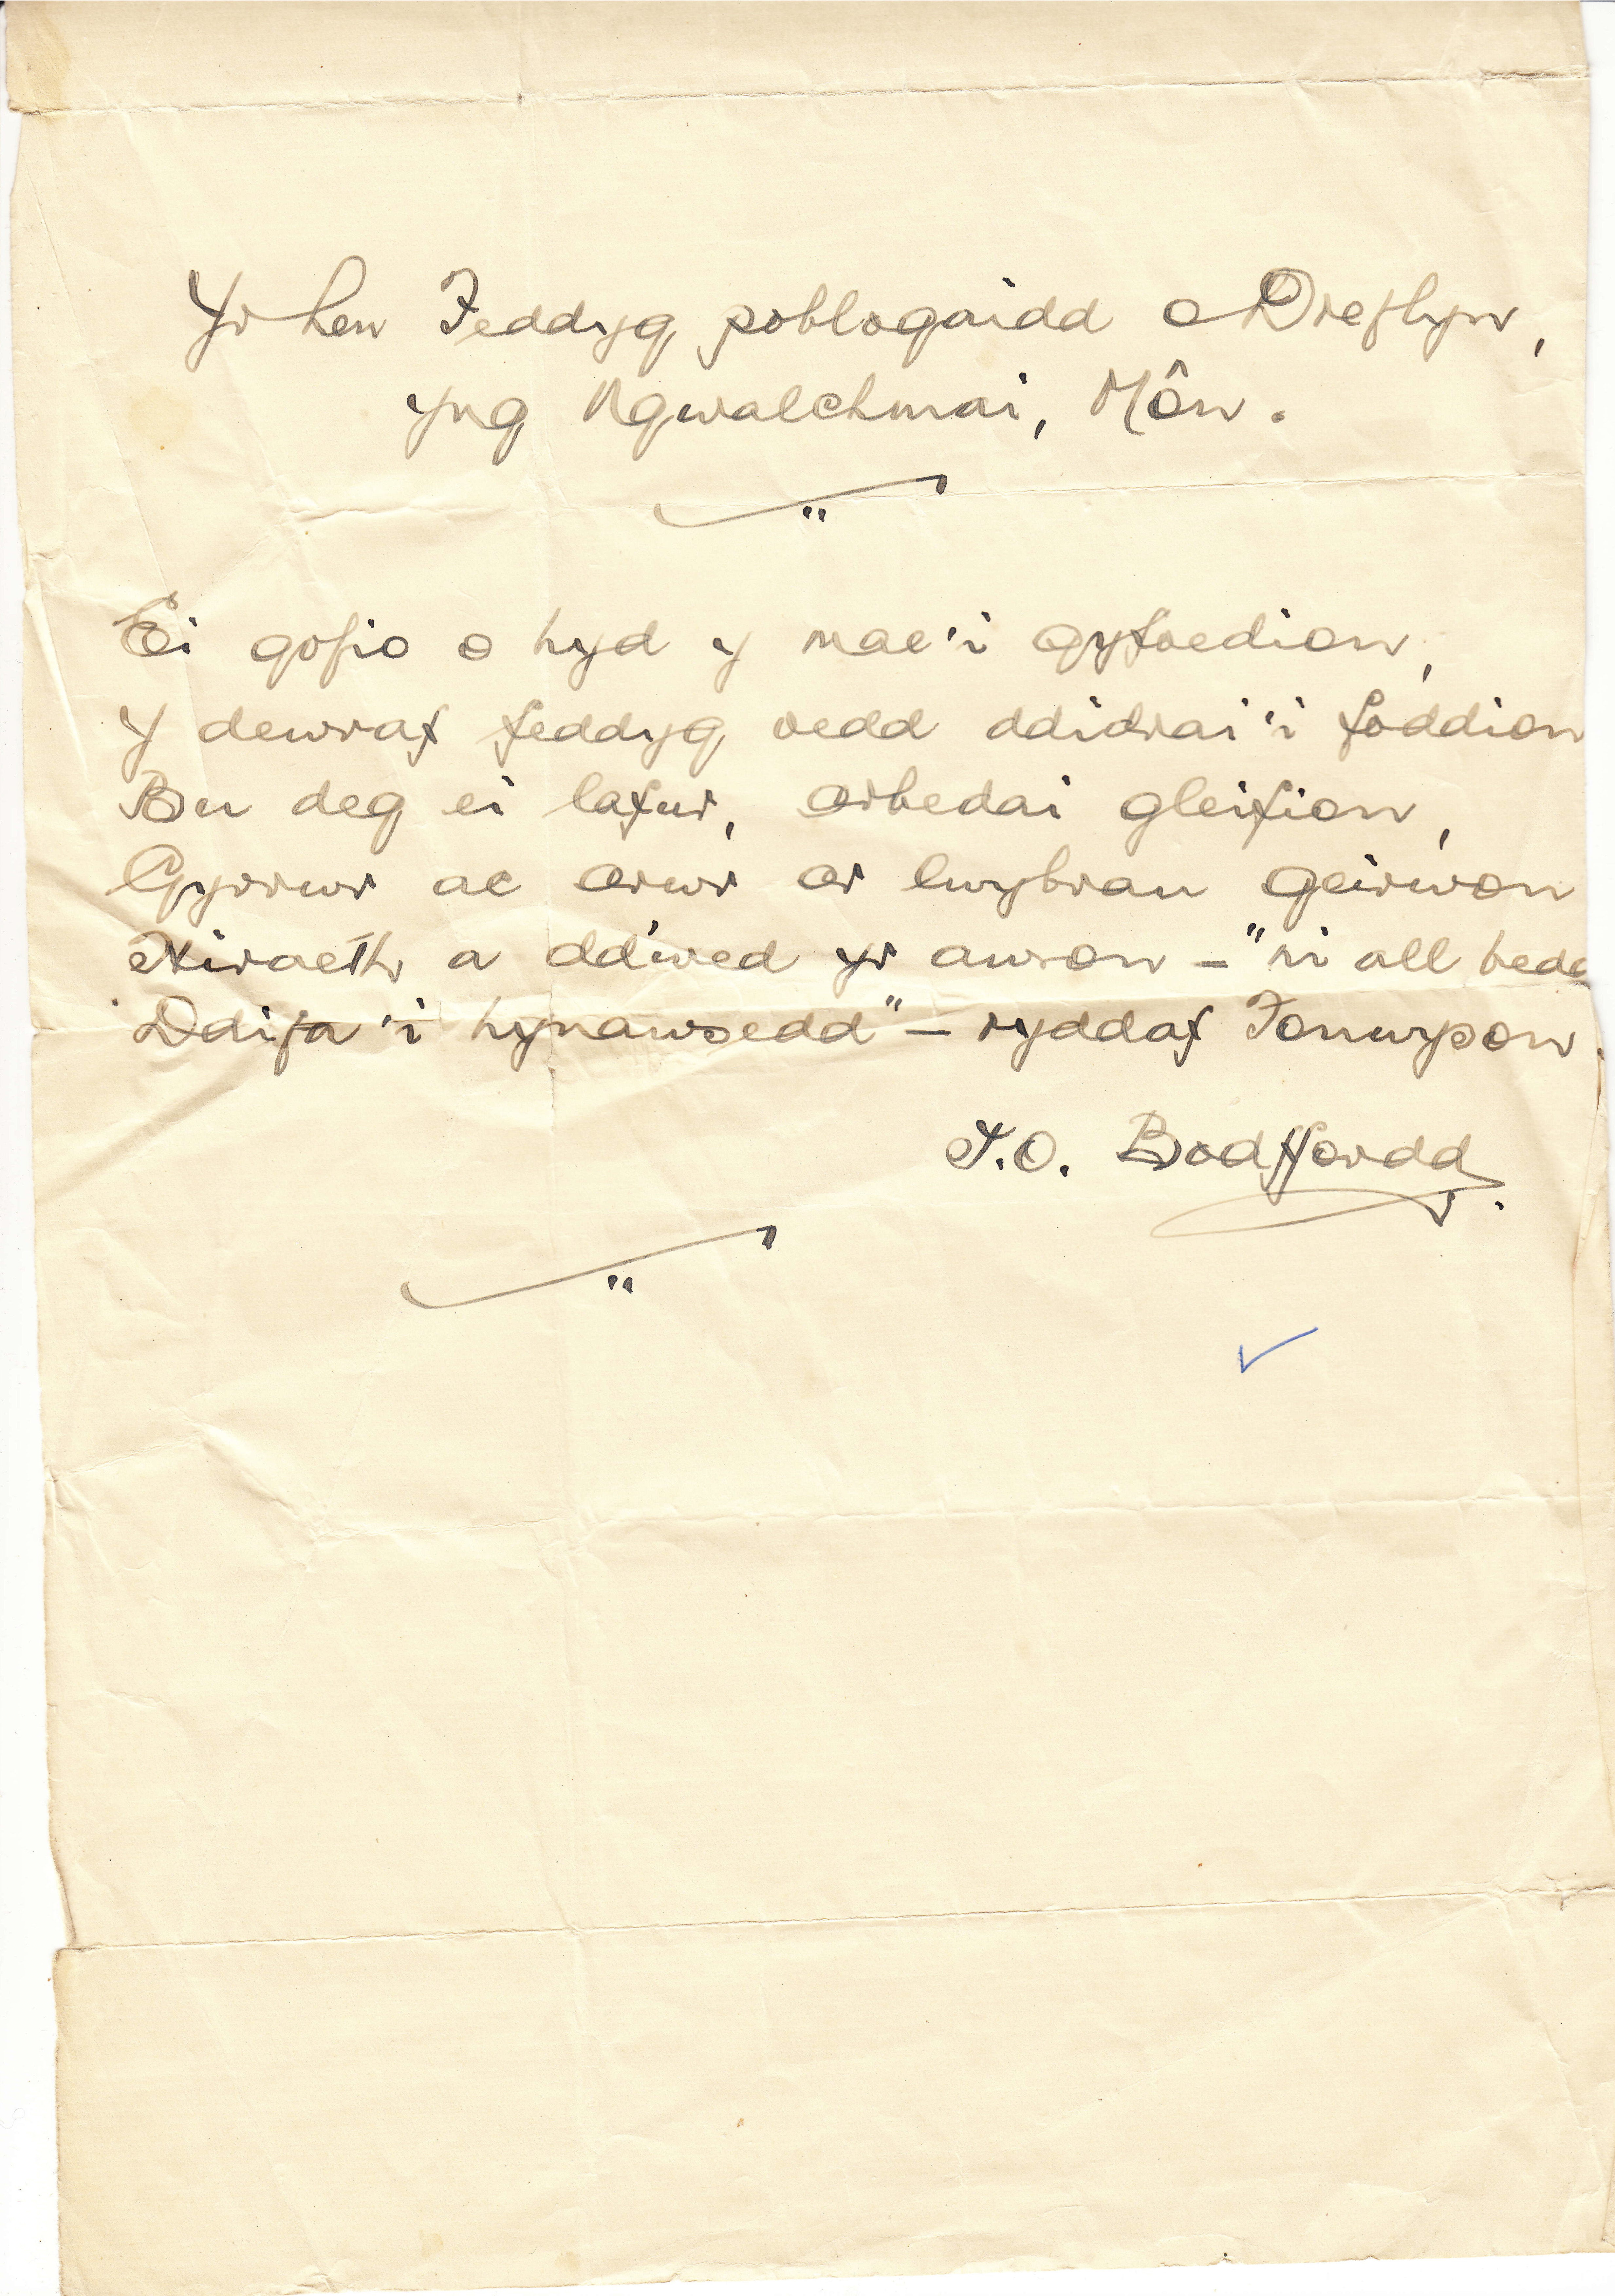 Yr hen Feddyg poblogaidd o Dreflyn,
yng Ngwalchmai, Môn.
Ei gofio o hyd y mae'i gyfoedion,
Y dewraf feddyg oedd ddidrai'i foddion
Bu deg ei lafur, arbedai gleifion,
Gyrrwr ac arwr ar lwybrau geirwon
Hiraeth a ddwed yr awron – "ni all bedd
Ddifa'i hynawsedd" – ryddaf Fonwyson.
T.O. Bodffordd.